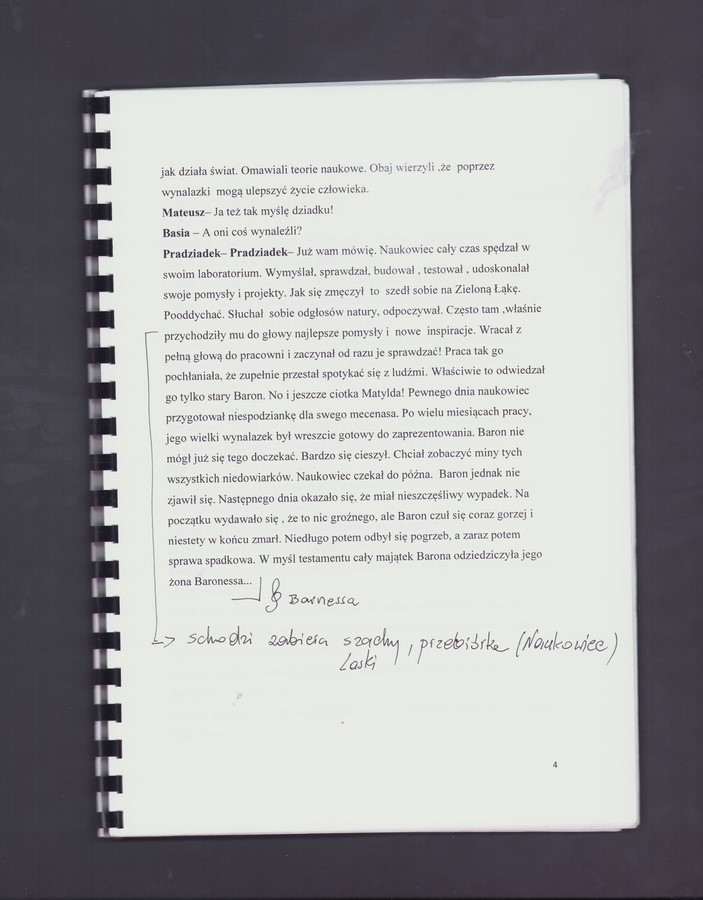 jak działa świat. Omawiali teorie naukowe. Obaj wierzyli ,że poprzez
wynalazki mogą ulepszyć życie człowieka.
Mateusz– Ja też tak myślę dziadku!
Basia – A oni coś wynaleźli?
Pradziadek– Pradziadek– Już wam mówię. Naukowiec cały czas spędzał w
swoim laboratorium. Wymyślał, sprawdzał, budował , testował , udoskonalał
swoje pomysły i projekty. Jak się zmęczył to szedł sobie na Zieloną Łąkę.
Pooddychać. Słuchał sobie odgłosów natury, odpoczywał. Często tam ,właśnie
przychodziły mu do głowy najlepsze pomysły i nowe inspiracje. Wracał z
pełną głową do pracowni i zaczynał od razu je sprawdzać! Praca tak go
pochłaniała, że zupełnie przestał spotykać się z ludźmi. Właściwie to odwiedzał
go tylko stary Baron. No i jeszcze ciotka Matylda! Pewnego dnia naukowiec
przygotował niespodziankę dla swego mecenasa. Po wielu miesiącach pracy,
jego wielki wynalazek był wreszcie gotowy do zaprezentowania. Baron nie
mógł już się tego doczekać. Bardzo się cieszył. Chciał zobaczyć miny tych
wszystkich niedowiarków. Naukowiec czekał do późna. Baron jednak nie
zjawił się. Następnego dnia okazało się, że miał nieszczęśliwy wypadek. Na
początku wydawało się , że to nic groźnego, ale Baron czuł się coraz gorzej i
niestety w końcu zmarł. Niedługo potem odbył się pogrzeb, a zaraz potem
sprawa spadkowa. W myśl testamentu cały majątek Barona odziedziczyła jego
żona Baronessa...
Barnessa
schodzi zabiera szachy, przebiórka (Naukowiec)
Laski
4